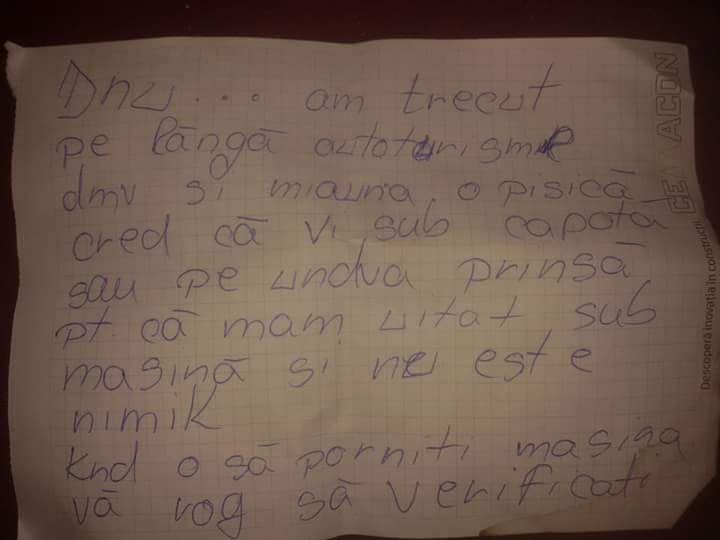 Dnu... am trecut
pe lângă autoturisme
dmv si miauna o pisică
cred că vi sub capota
sau pe undva prinsă
pt. că mam uitat sub
masină si nu este
nimik
Knd o să porniti masina
vă rog să verificati
ACON
Descoperă inovația în construcții